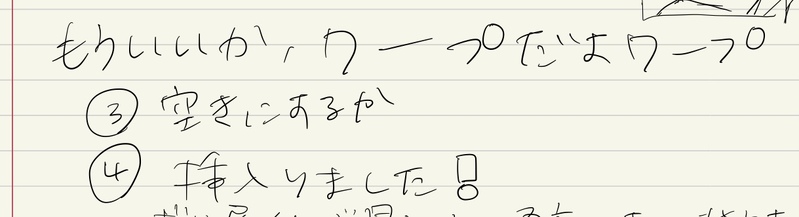 もういいか,ワープだよワープ
③ 空きにするか
④ 挿入りました!